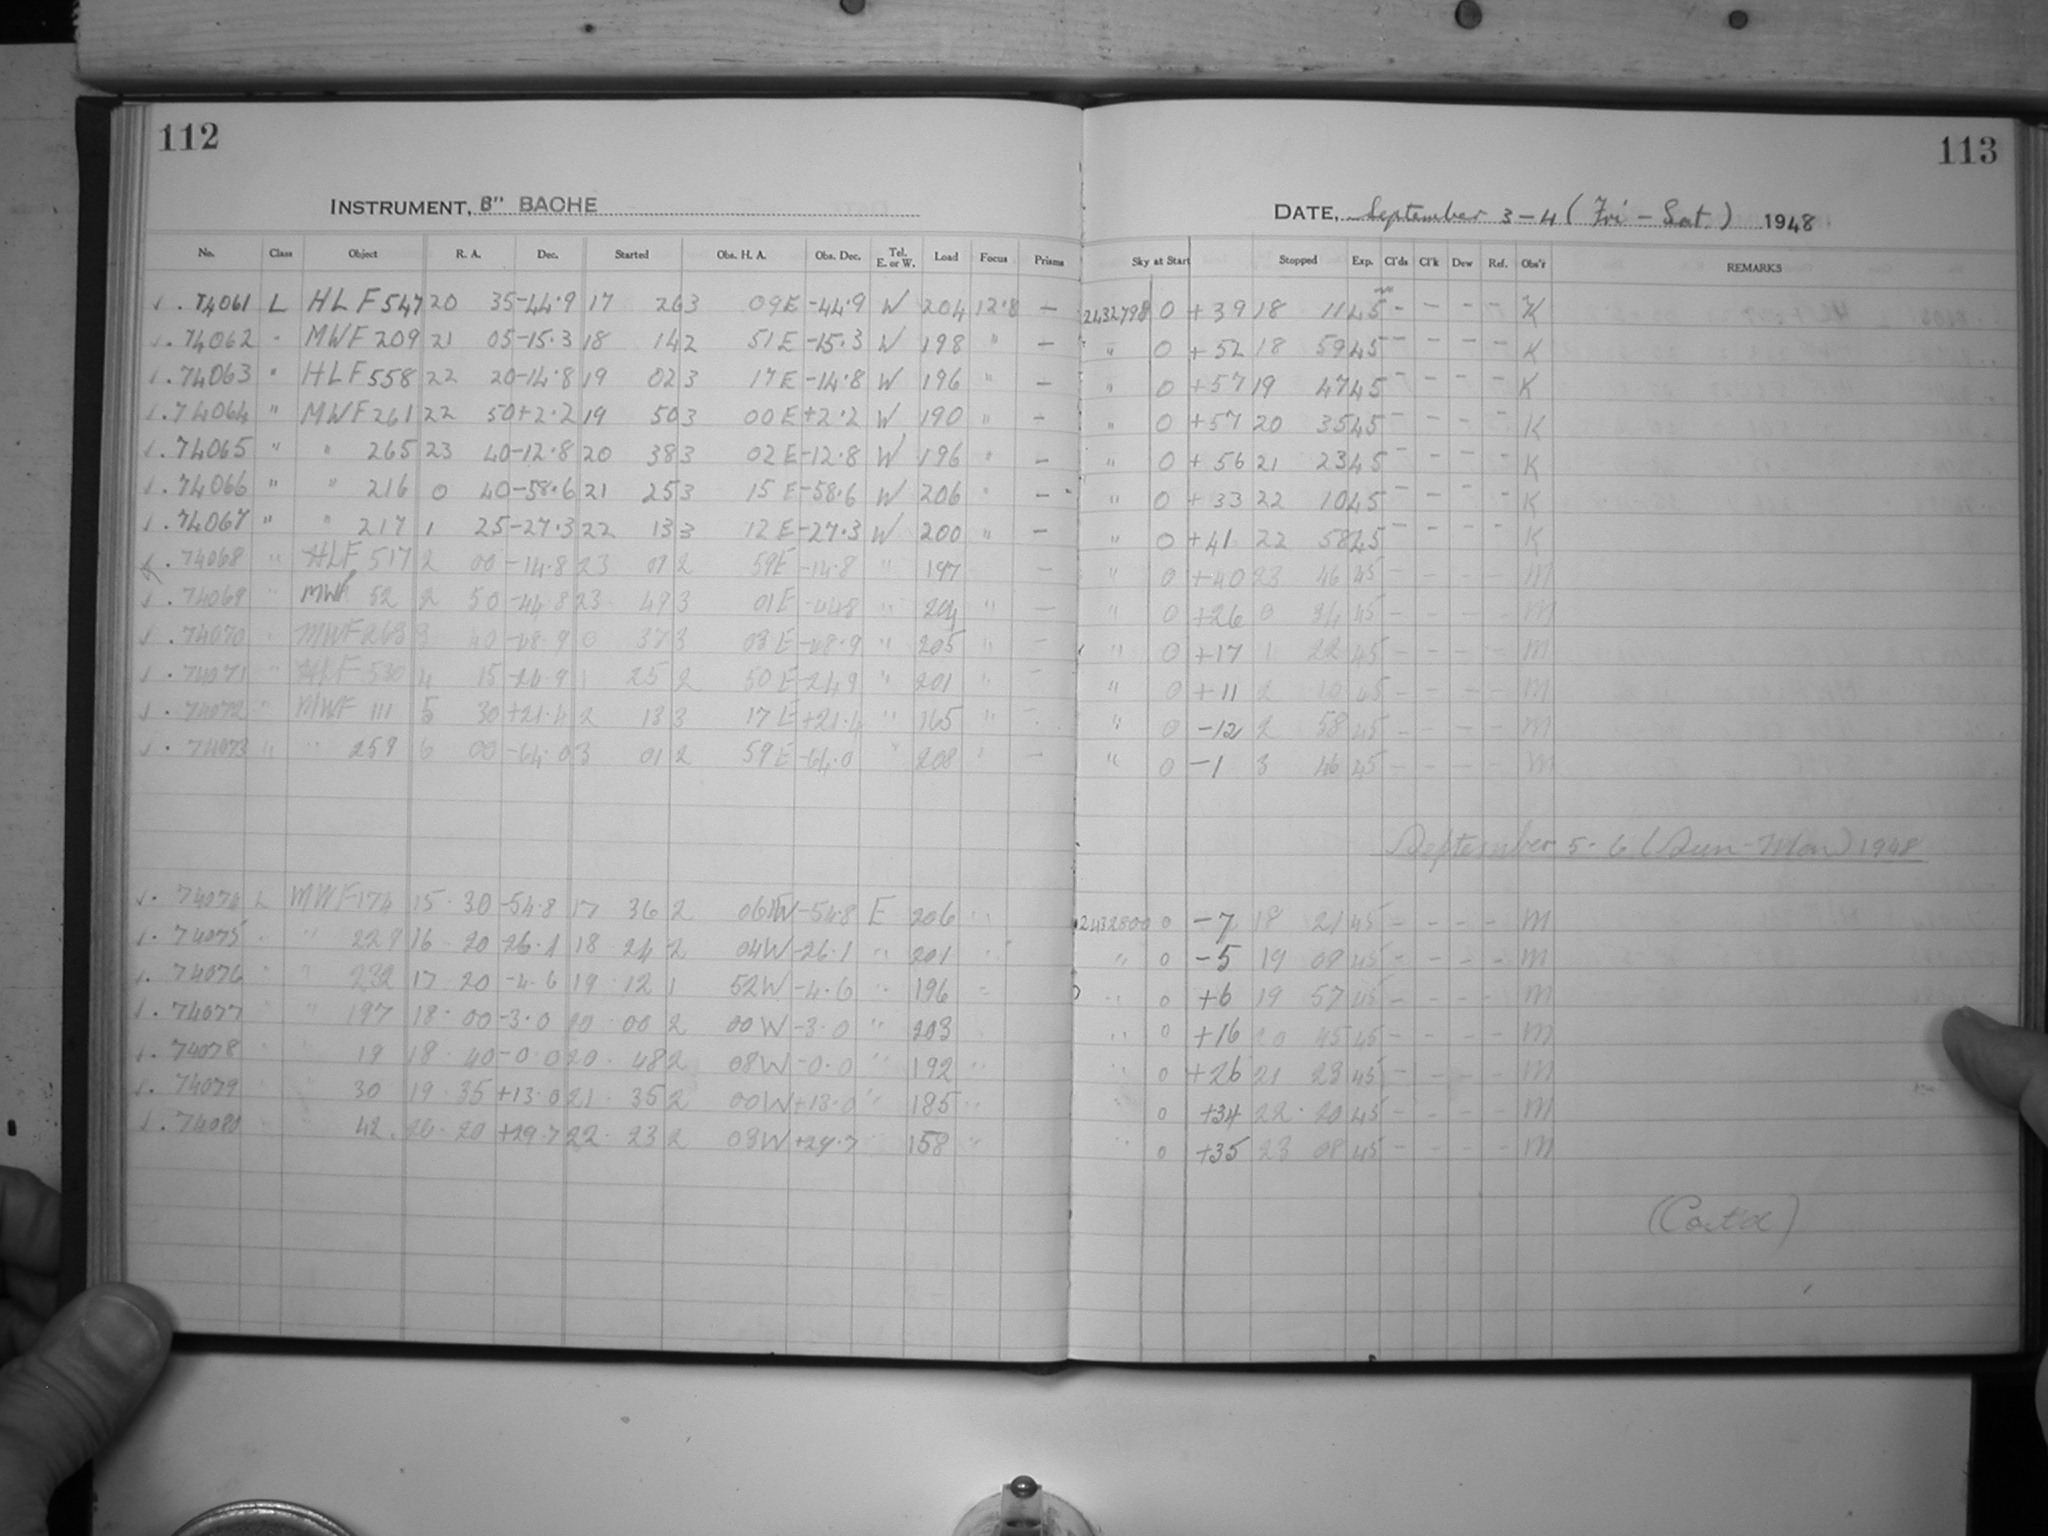 112
113
INSTRUMENT, 8" BACHE
DATE, September 3-4 (Fri - Sat.) 1948
No. Class Object R. A. Dec. Started Obs. H. A. Obs. Dec. Tel. E. or W. Load Focus Prisms Sky at Start Stopped Exp. Cl'ds Cl'k Dew Ref. Obs'r REMARKS
74061 L HLF 547 20 35 -44.9 17 26 3 09E -44.9 W 204 12.8 - 2432798 0 +39 18 11 45 - - - - K
74062 " MWF 209 21 05 -15.3 18 14 2 51E -15.3 W 198 " - " 0 +52 18 59 45 - - - - K
74063 " HLF 558 22 20 -14.8 19 02 3 17E -14.8 W 196 " - " 0 +57 19 47 45 - - - - K
74064 " MWF 261 22 50 +2.2 19 50 3 00E +2.2 W 190 " - " 0 +57 20 35 45 - - - - K
74065 " " 265 23 40 -12.8 20 38 3 02E -12.8 W 196 " - " 0 +56 21 23 45 - - - - K
74066 " " 216 0 40 -58.6 21 25 3 15E -58.6 W 206 " - " 0 +33 22 10 45 - - - - K
74067 " " 217 1 25 -27.3 22 13 3 12E -27.3 W 200 " - " 0 +41 22 58 45 - - - - K
74068 " HLF 517 2 00 -14.8 23 01 2 59E -14.8 " 197 - " 0 +40 23 46 45 - - - - M
74069 " MWF 52 2 50 -44.8 23 49 3 01E -44.8 " 204 " - " 0 +26 0 34 45 - - - - M
74070 " MWF 263 3 40 -48.9 0 37 3 03E -48.9 " 205 " - " 0 +17 1 22 45 - - - - M
74071 " HLF 530 4 15 -24.9 1 25 2 50E -24.9 " 201 " - " 0 +11 2 10 45 - - - - M
74072 " MWF 111 5 30 +21.4 2 13 3 17E +21.4 " 165 " - " 0 -12 2 58 45 - - - - M
74073 " " 259 6 00 -64.0 3 01 2 59E -64.0 " 208 " - " 0 -1 3 46 45 - - - - M
September 5-6 (Sun-Mon) 1948
74074 L MWF 174 15 30 -54.8 17 36 2 06W -54.8 E 206 " 2432800 0 -7 18 21 45 - - - - M
74075 " " 229 16 20 -26.1 18 24 2 04W -26.1 " 201 " " 0 -5 19 09 45 - - - - M
74076 " " 232 17 20 -4.6 19 12 1 52W -4.6 " 196 " " 0 +6 19 57 45 - - - - M
74077 " " 197 18 00 -3.0 20 00 2 00W -3.0 " 203 " 0 +16 20 45 45 - - - - M
74078 19 18 40 -0.0 20 48 2 08W -0.0 " 192 " " 0 +26 21 45 - - - - M
74079 30 19 35 +13.0 21 35 2 00W +13.0 " 185 " 0 +34 22 20 45 - - - - M
74080 42 20 20 +29.7 22 23 2 03W +29.7 158 " " 0 +35 23 08 45 - - - - M